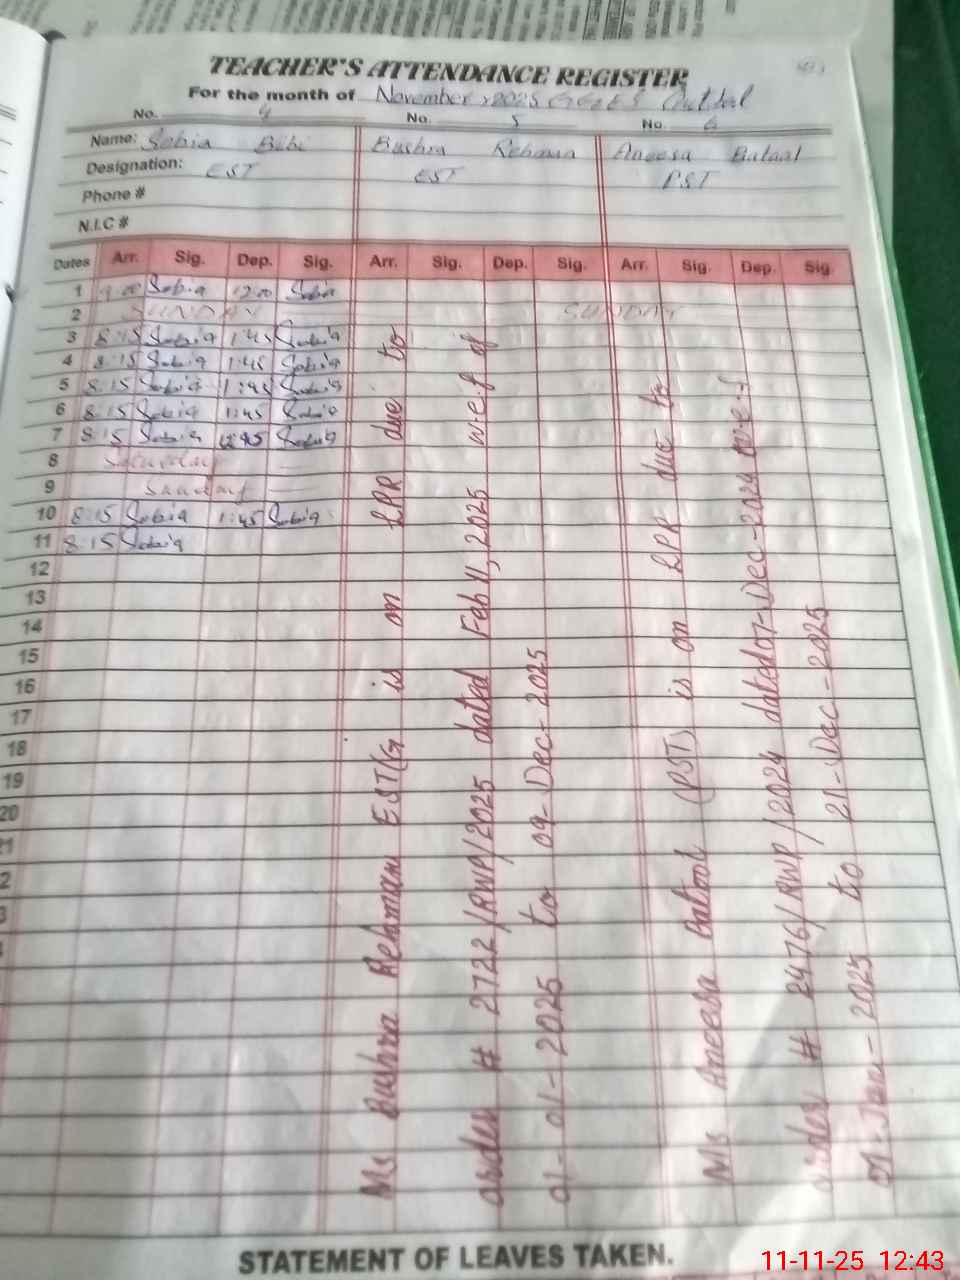 TEACHER'S ATTENDANCE REGISTER
For the month of November, 2025 GGES
No. 4 No. 5 No. 6
Name: Sobia Bibi Bushra Rehman Aneesa Batool
Designation: EST EST PST
Phone #
N.I.C #
Dates Arr. Sig. Dep. Sig. Arr. Sig. Dep. Sig. Arr. Sig. Dep. Sig.
1 9:00 Sobia 12:00 Sobia
2 SUNDAY SUNDAY
3 8:15 Sobia 1:45 Sobia
4 8:15 Sobia 1:45 Sobia
5 8:15 Sobia 1:45 Sobia
6 8:15 Sobia 1:45 Sobia
7 8:15 Sobia 12:45 Sobia
8 Saturday
9 Sunday
10 8:15 Sobia 1:45 Sobia
11 8:15 Sobia
12
13
14
15
16
17
18
19
20
21
2
3
Ms Bushra Rehman EST(G is on LPR due to
order # 2722/RWP/2025 dated Feb 11, 2025 w.e.f of
01-01-2025 to 09-Dec-2025
Ms Aneesa Batool (PST) is on LPR due to
order # 2476/RWP/2024 dated 07-Dec-2024 w.e.f
01-Jan-2025 to 21-Dec-2025
STATEMENT OF LEAVES TAKEN.
11-11-25 12:43